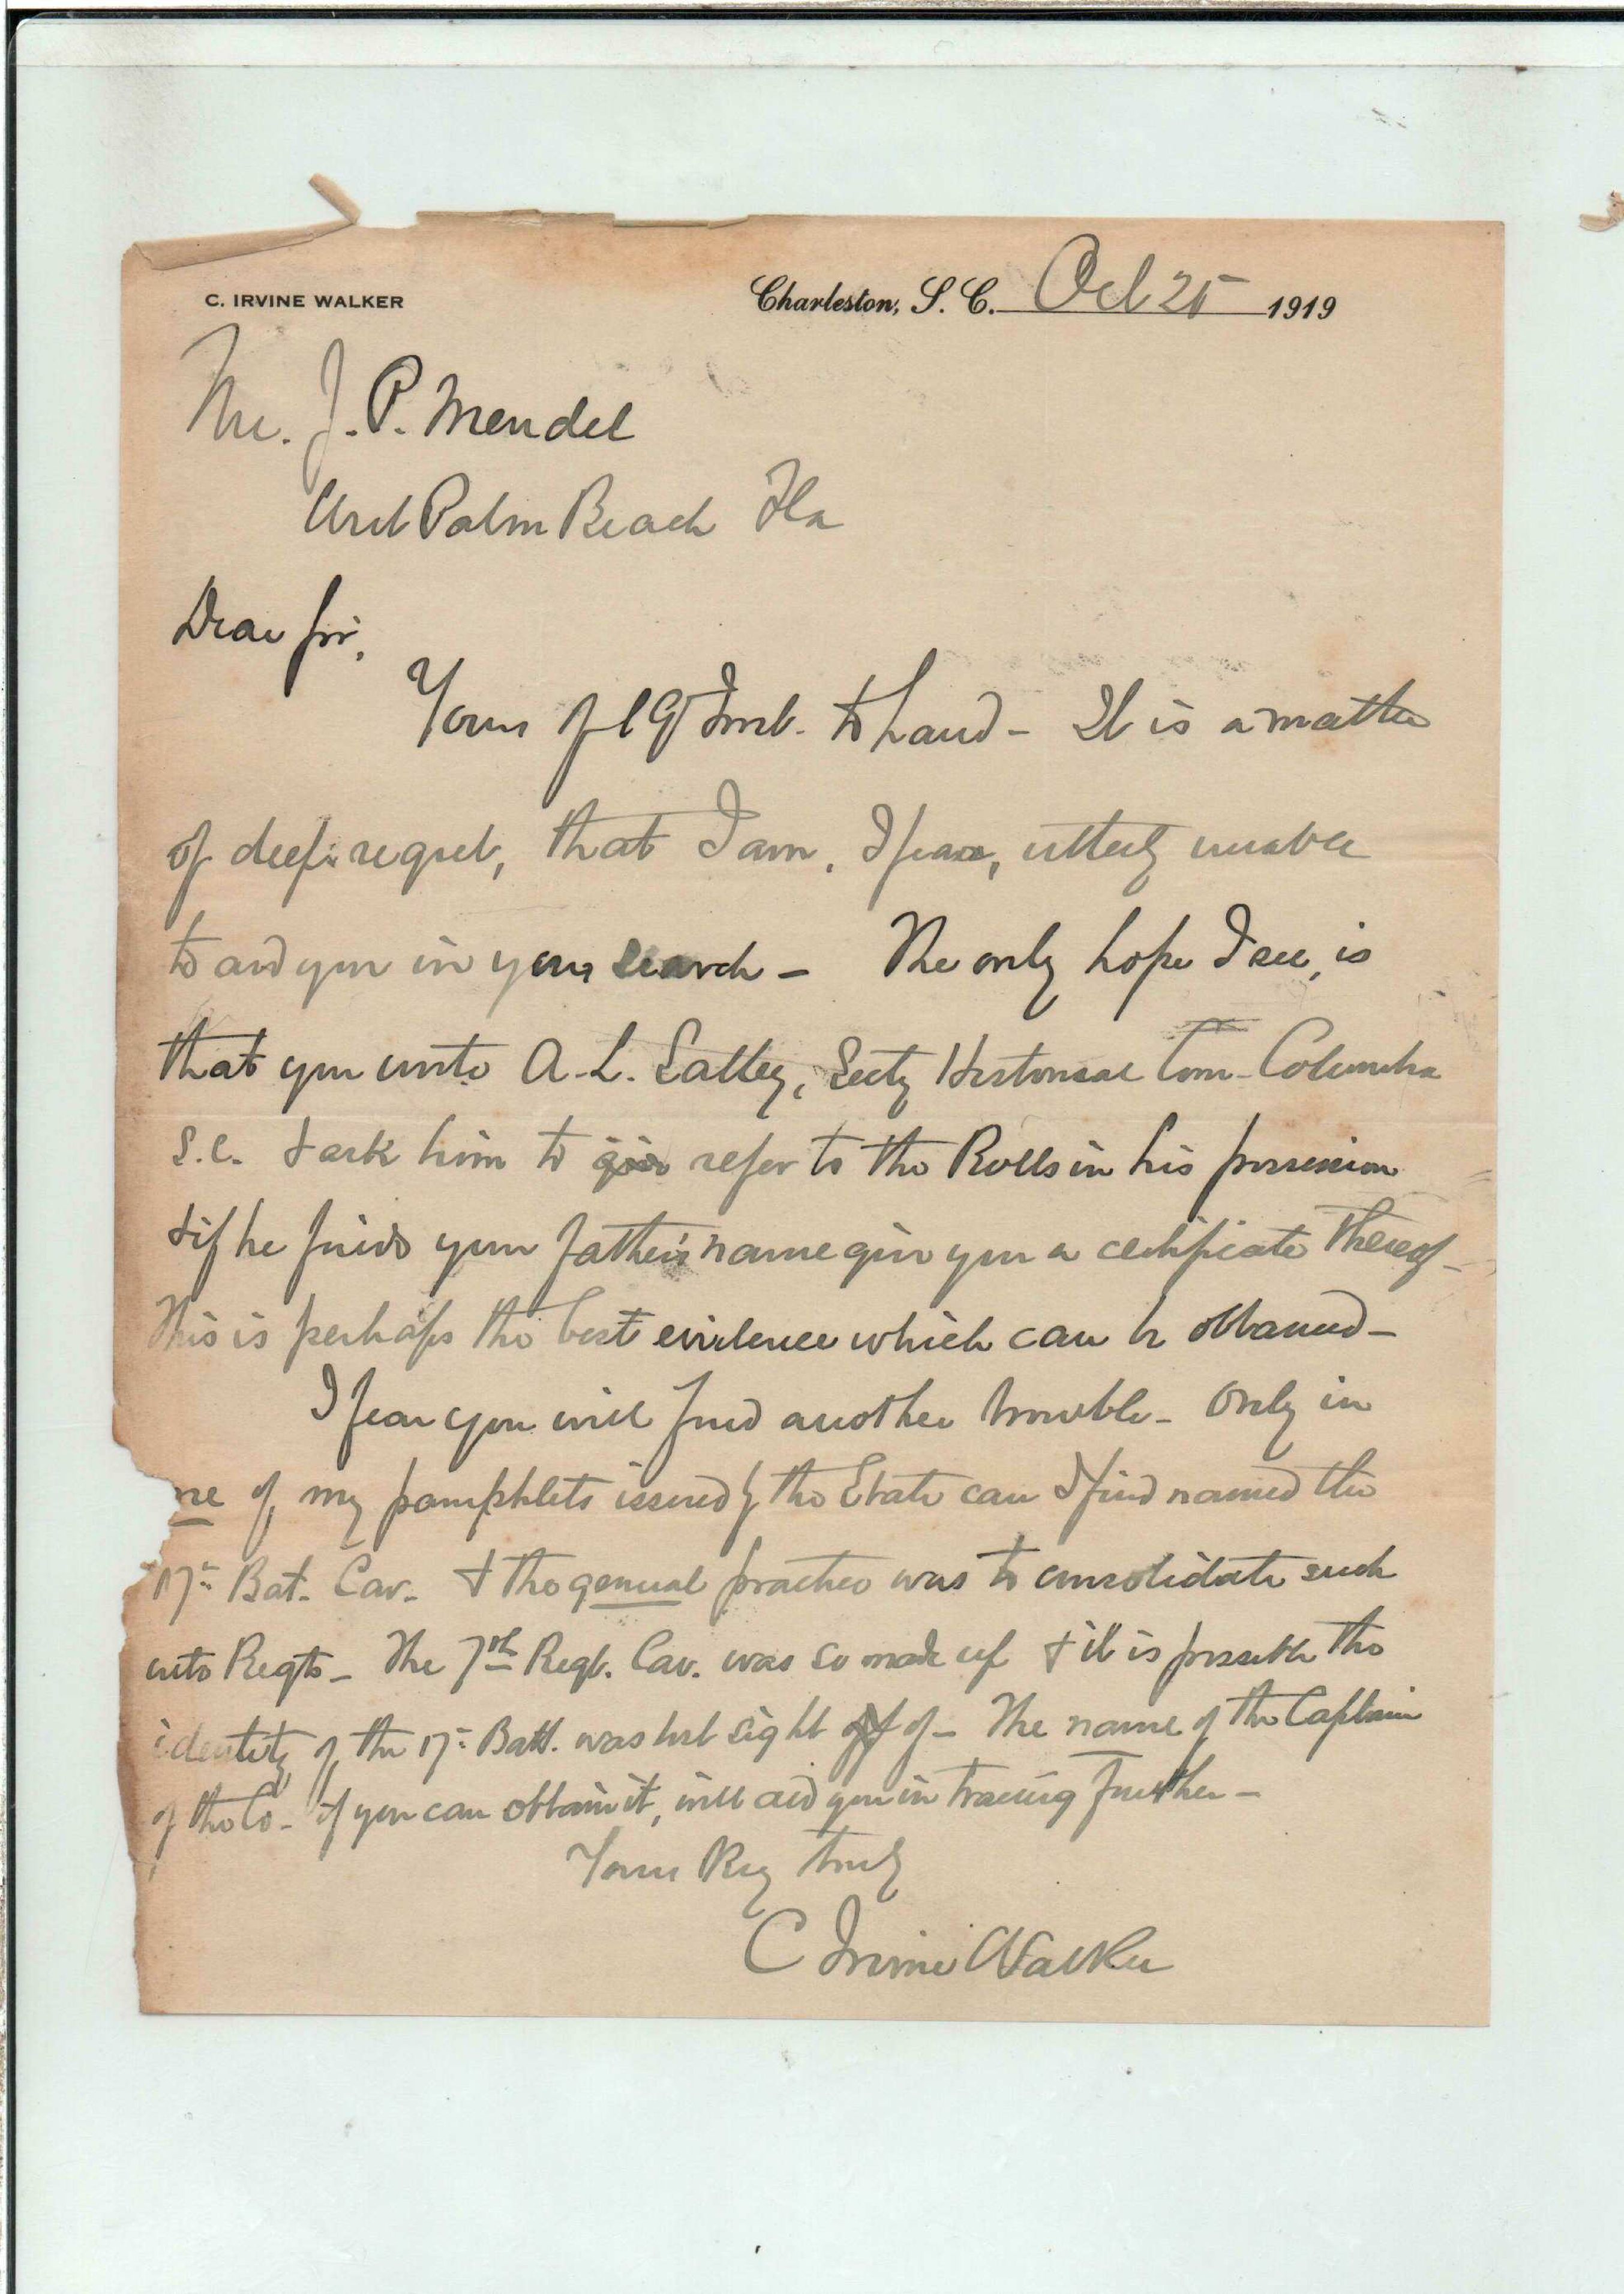 C. IRVINE WALKER
Charleston, S. C. Oct 25 1919
Mr. J. P. Mendel
West Palm Beach Fla
Dear Sir,
Yours of 19 Inst. to hand - It is a matter
of deep regret, that I am, I fear, utterly unable
to aid you in your search - The only hope I see, is
that you write A. L. Salley, Secty Historical Com - Columbia
S.C. & ask him to give refer to the Rolls in his possession
& if he finds your father's name give you a certificate thereof -
This is perhaps the best evidence which can be obtained -
I fear you will find another trouble - Only in
ne of my pamphlets issued by the State can I find named the
17th Bat. Cav. & the general practice was to consolidate such
into Regts - The 7th Regt. Cav. was so made up & it is possible the
identity of the 17th Batt. was lost sight of of - The name of the Captain
of the Co - if you can obtain it, will aid you in tracing further -
Yours Very truly
C Irvine Walker